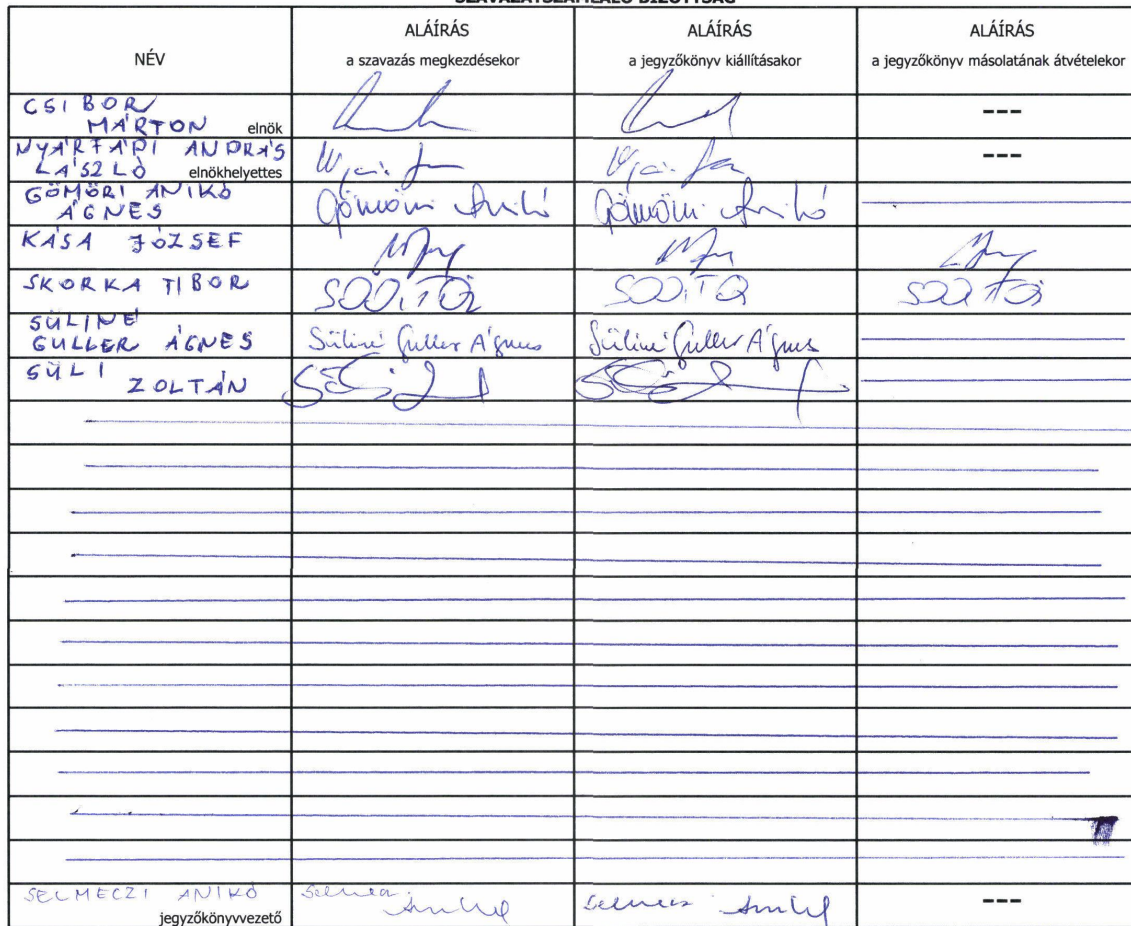 SZAVAZATSZÁMLÁLÓ BIZOTTSÁG
NÉV
ALÁÍRÁS
a szavazás megkezdésekor
ALÁÍRÁS
a jegyzőkönyv kiállításakor
ALÁÍRÁS
a jegyzőkönyv másolatának átvételekor
CSIBOR
MÁRTON elnök
---
NYÁRFÁDI ANDRÁS
LÁSZLÓ elnökhelyettes
---
GÖMÖRI ANIKÓ
ÁGNES
Gömöri Anikó
Gömöri Anikó
KÁSA JÓZSEF
SKORKA TIBOR
SÜLINÉ
GULLER ÁGNES
Süliné Guller Ágnes
Süliné Guller Ágnes
SÜLI
ZOLTÁN
SELMECZI ANIKÓ
jegyzőkönyvvezető
Anikó
Anikó
---